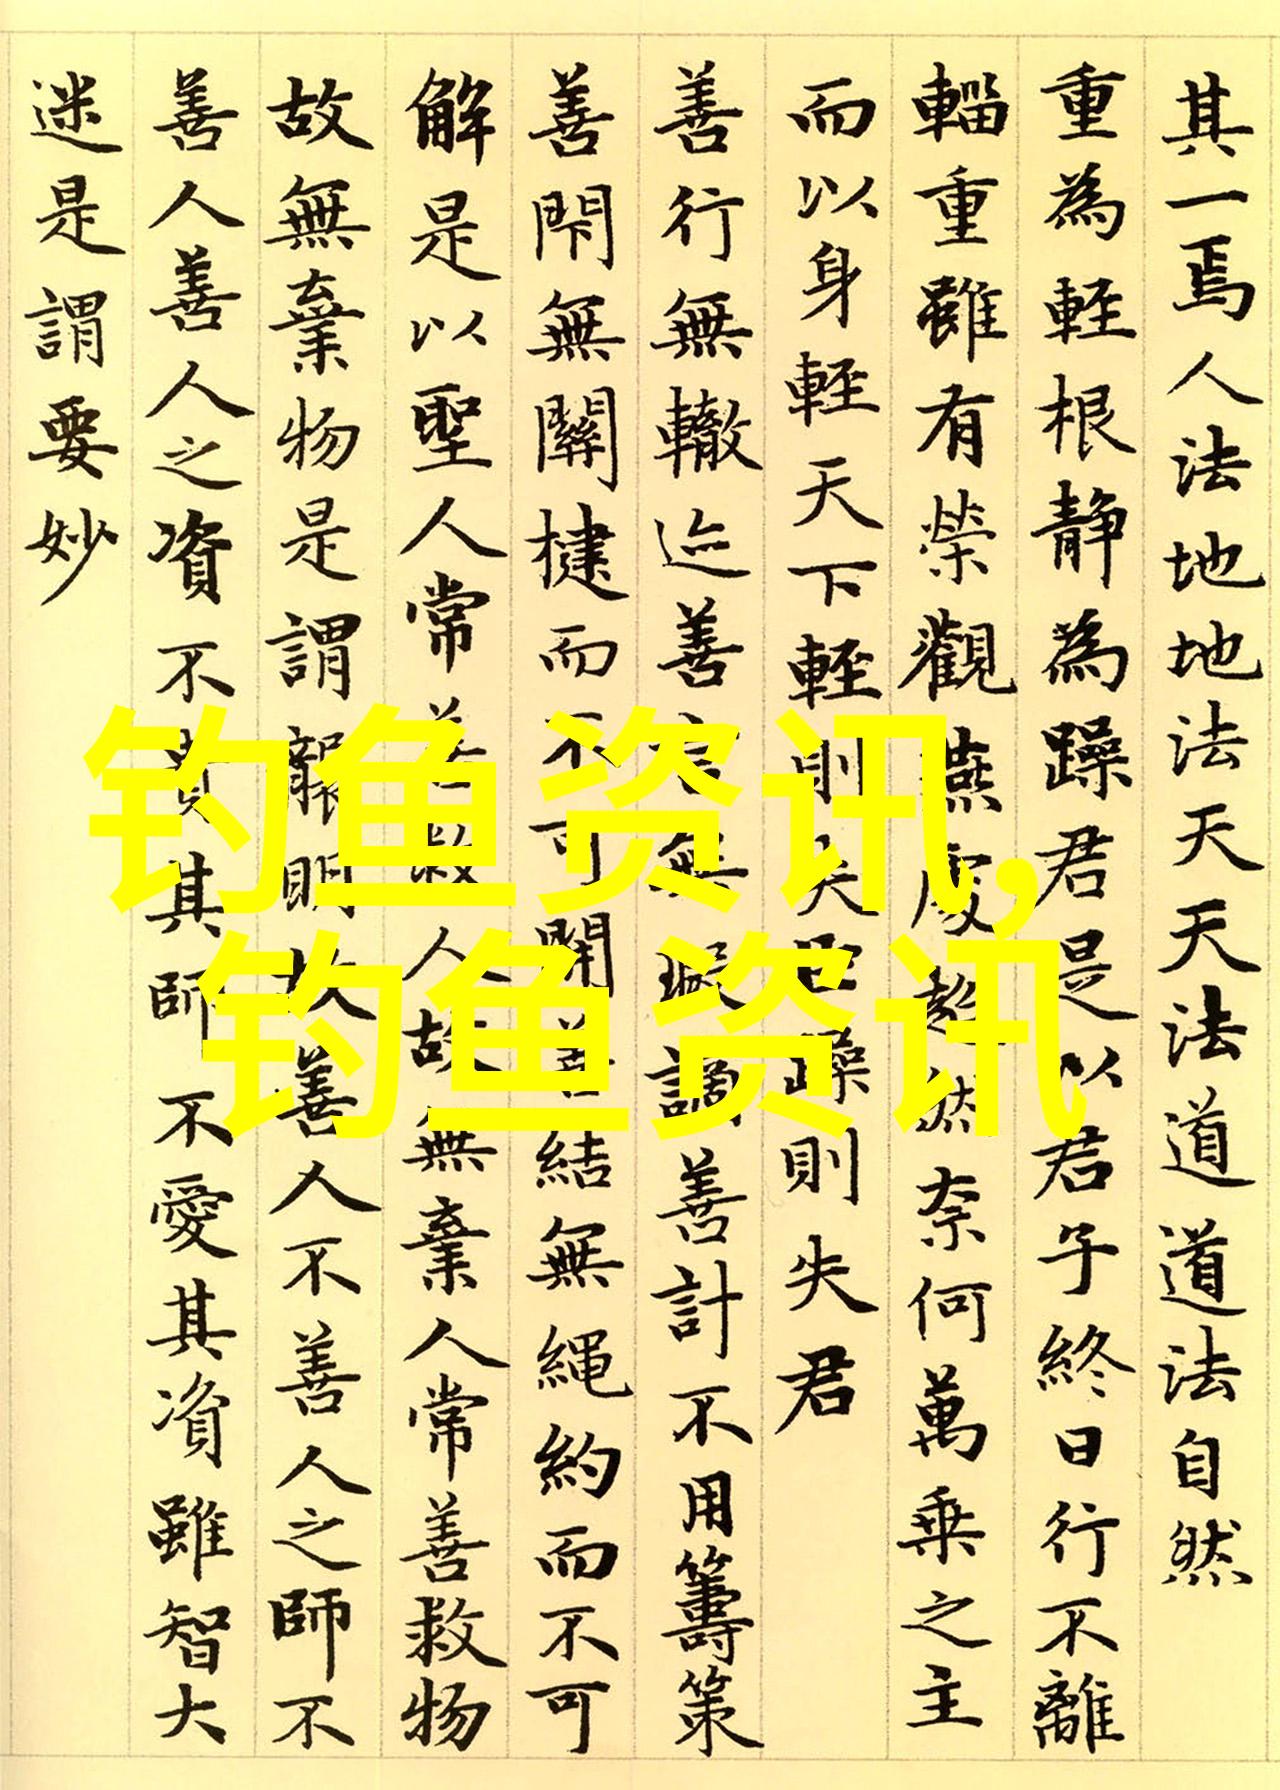 其一焉人法地地法天天法道道法自然
重為輕根静為躁君是以君子終日行不離
輜重雖有榮觀燕處超然奈何萬乗之主
而以身輕天下輕則失臣躁則失君
善行無轍迹善言無瑕謫善計不用籌策
善閇無關楗而不可開善結無繩約而不可
解是以聖人常善救人故無棄人常善救物
故無棄物是謂襲明故善人不善人之師不
善人善人之資不貴其師不愛其資雖智大
迷是謂要妙
钓鱼资讯,
钓鱼资讯